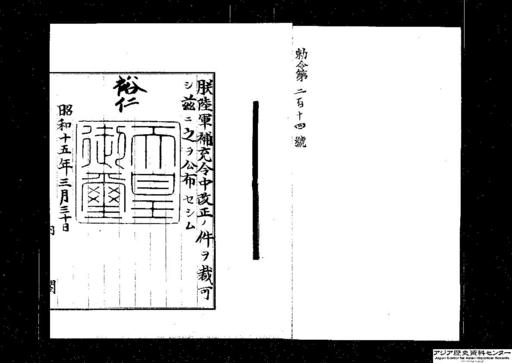 勅令第二百十四號
朕陸軍補充令中改正ノ件ヲ裁可
シ茲ニ之ヲ公布セシム
裕仁
天皇
御璽
昭和十五年三月三十日
内閣
アジア歴史資料センター
Japan Center for Asian Historical Records